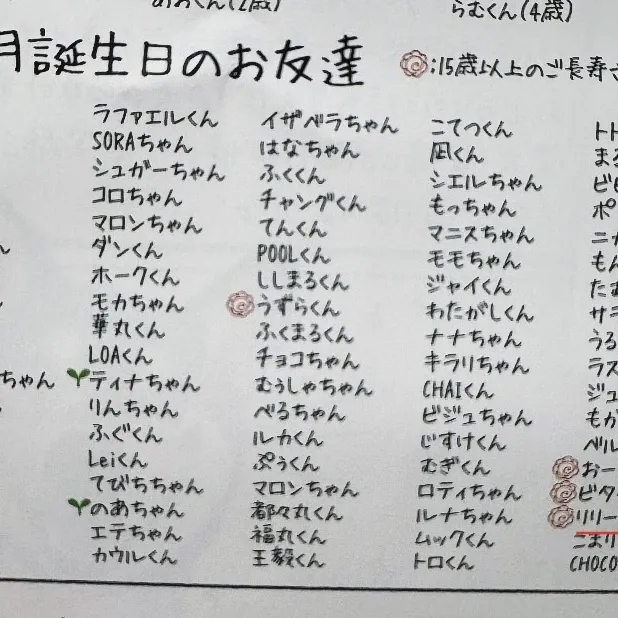 らむくん(4歳)
月誕生日のお友達
:15歳以上のご長寿さ
ラファエルくん
SORAちゃん
シュガーちゃん
コロちゃん
マロンちゃん
ダンくん
ホークくん
モカちゃん
華丸くん
LOAくん
ティナちゃん
りんちゃん
ふぐくん
Leiくん
てびちちゃん
のあちゃん
エテちゃん
カウルくん
イザベラちゃん
はなちゃん
ふくくん
チャングくん
てんくん
POOLくん
ししまるくん
うずらくん
ふくまるくん
チョコちゃん
むぅしゃちゃん
べるちゃん
ルカくん
ぷぅくん
マロンちゃん
都々丸くん
福丸くん
王毅くん
こてつくん
凪くん
シエルちゃん
もっちゃん
マニスちゃん
モモちゃん
ジャイくん
わたがしくん
ナナちゃん
キラリちゃん
CHAIくん
ビジュちゃん
じすけくん
むぎくん
ロティちゃん
ルナちゃん
ムックくん
トロくん
ちゃん
トト
まる
ビビ
ポ
ニカ
もん
たお
サラ
うる
ラス
ジュ
もか
ベル
おー
ビタ
リリー
こまり
CHOCO